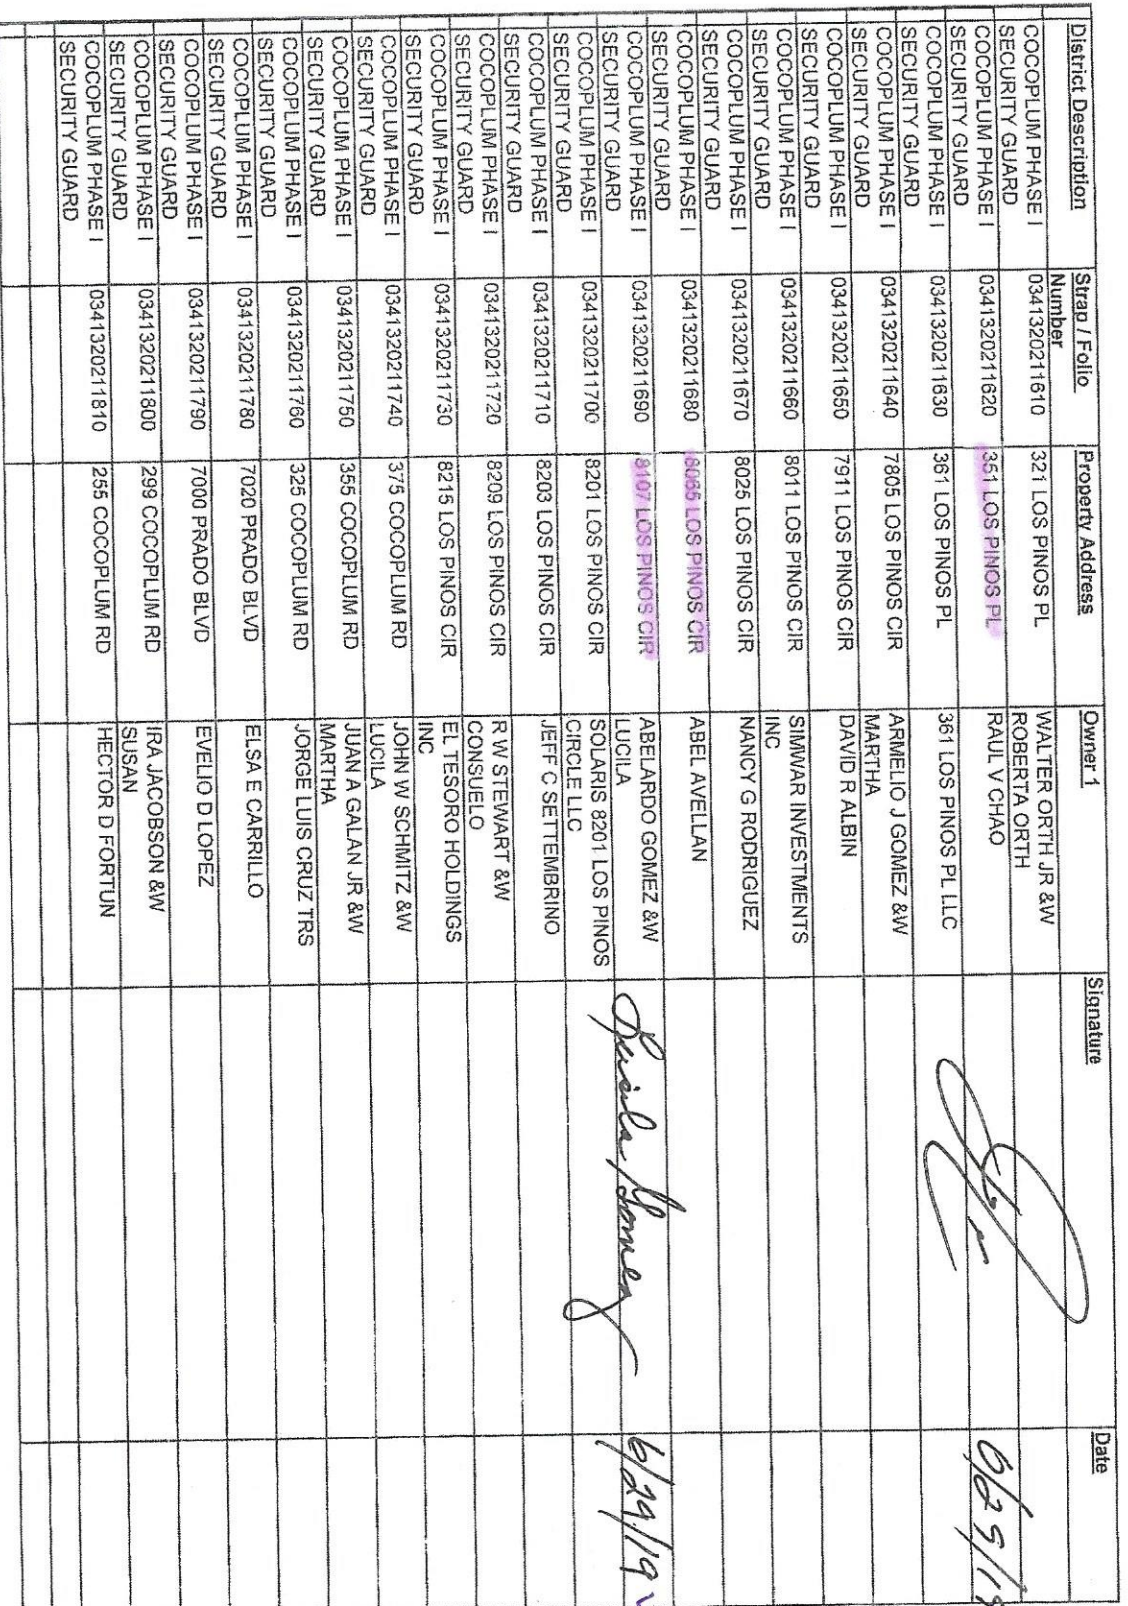 District Description Strap / Folio Number Property Address Owner 1 Signature Date
COCOPLUM PHASE I SECURITY GUARD 0341320211610 321 LOS PINOS PL WALTER ORTH JR &W ROBERTA ORTH
COCOPLUM PHASE I SECURITY GUARD 0341320211620 351 LOS PINOS PL RAUL V CHAO
COCOPLUM PHASE I SECURITY GUARD 0341320211630 361 LOS PINOS PL 361 LOS PINOS PL LLC
COCOPLUM PHASE I SECURITY GUARD 0341320211640 7805 LOS PINOS CIR ARMELIO J GOMEZ &W MARTHA
COCOPLUM PHASE I SECURITY GUARD 0341320211650 7911 LOS PINOS CIR DAVID R ALBIN
COCOPLUM PHASE I SECURITY GUARD 0341320211660 8011 LOS PINOS CIR SIMWAR INVESTMENTS INC
COCOPLUM PHASE I SECURITY GUARD 0341320211670 8025 LOS PINOS CIR NANCY G RODRIGUEZ
COCOPLUM PHASE I SECURITY GUARD 0341320211680 8065 LOS PINOS CIR ABEL AVELLAN
COCOPLUM PHASE I SECURITY GUARD 0341320211690 8107 LOS PINOS CIR ABELARDO GOMEZ &W LUCILA Lucila Gomez 6/29/19
COCOPLUM PHASE I SECURITY GUARD 0341320211700 8201 LOS PINOS CIR SOLARIS 8201 LOS PINOS CIRCLE LLC
COCOPLUM PHASE I SECURITY GUARD 0341320211710 8203 LOS PINOS CIR JEFF C SETTEMBRINO
COCOPLUM PHASE I SECURITY GUARD 0341320211720 8209 LOS PINOS CIR R W STEWART &W CONSUELO
COCOPLUM PHASE I SECURITY GUARD 0341320211730 8215 LOS PINOS CIR EL TESORO HOLDINGS INC
COCOPLUM PHASE I SECURITY GUARD 0341320211740 375 COCOPLUM RD JOHN W SCHMITZ &W LUCILA
COCOPLUM PHASE I SECURITY GUARD 0341320211750 355 COCOPLUM RD JUAN A GALAN JR &W MARTHA
COCOPLUM PHASE I SECURITY GUARD 0341320211760 325 COCOPLUM RD JORGE LUIS CRUZ TRS
COCOPLUM PHASE I SECURITY GUARD 0341320211780 7020 PRADO BLVD ELSA E CARRILLO
COCOPLUM PHASE I SECURITY GUARD 0341320211790 7000 PRADO BLVD EVELIO D LOPEZ
COCOPLUM PHASE I SECURITY GUARD 0341320211800 299 COCOPLUM RD IRA JACOBSON &W SUSAN
COCOPLUM PHASE I SECURITY GUARD 0341320211810 255 COCOPLUM RD HECTOR D FORTUN